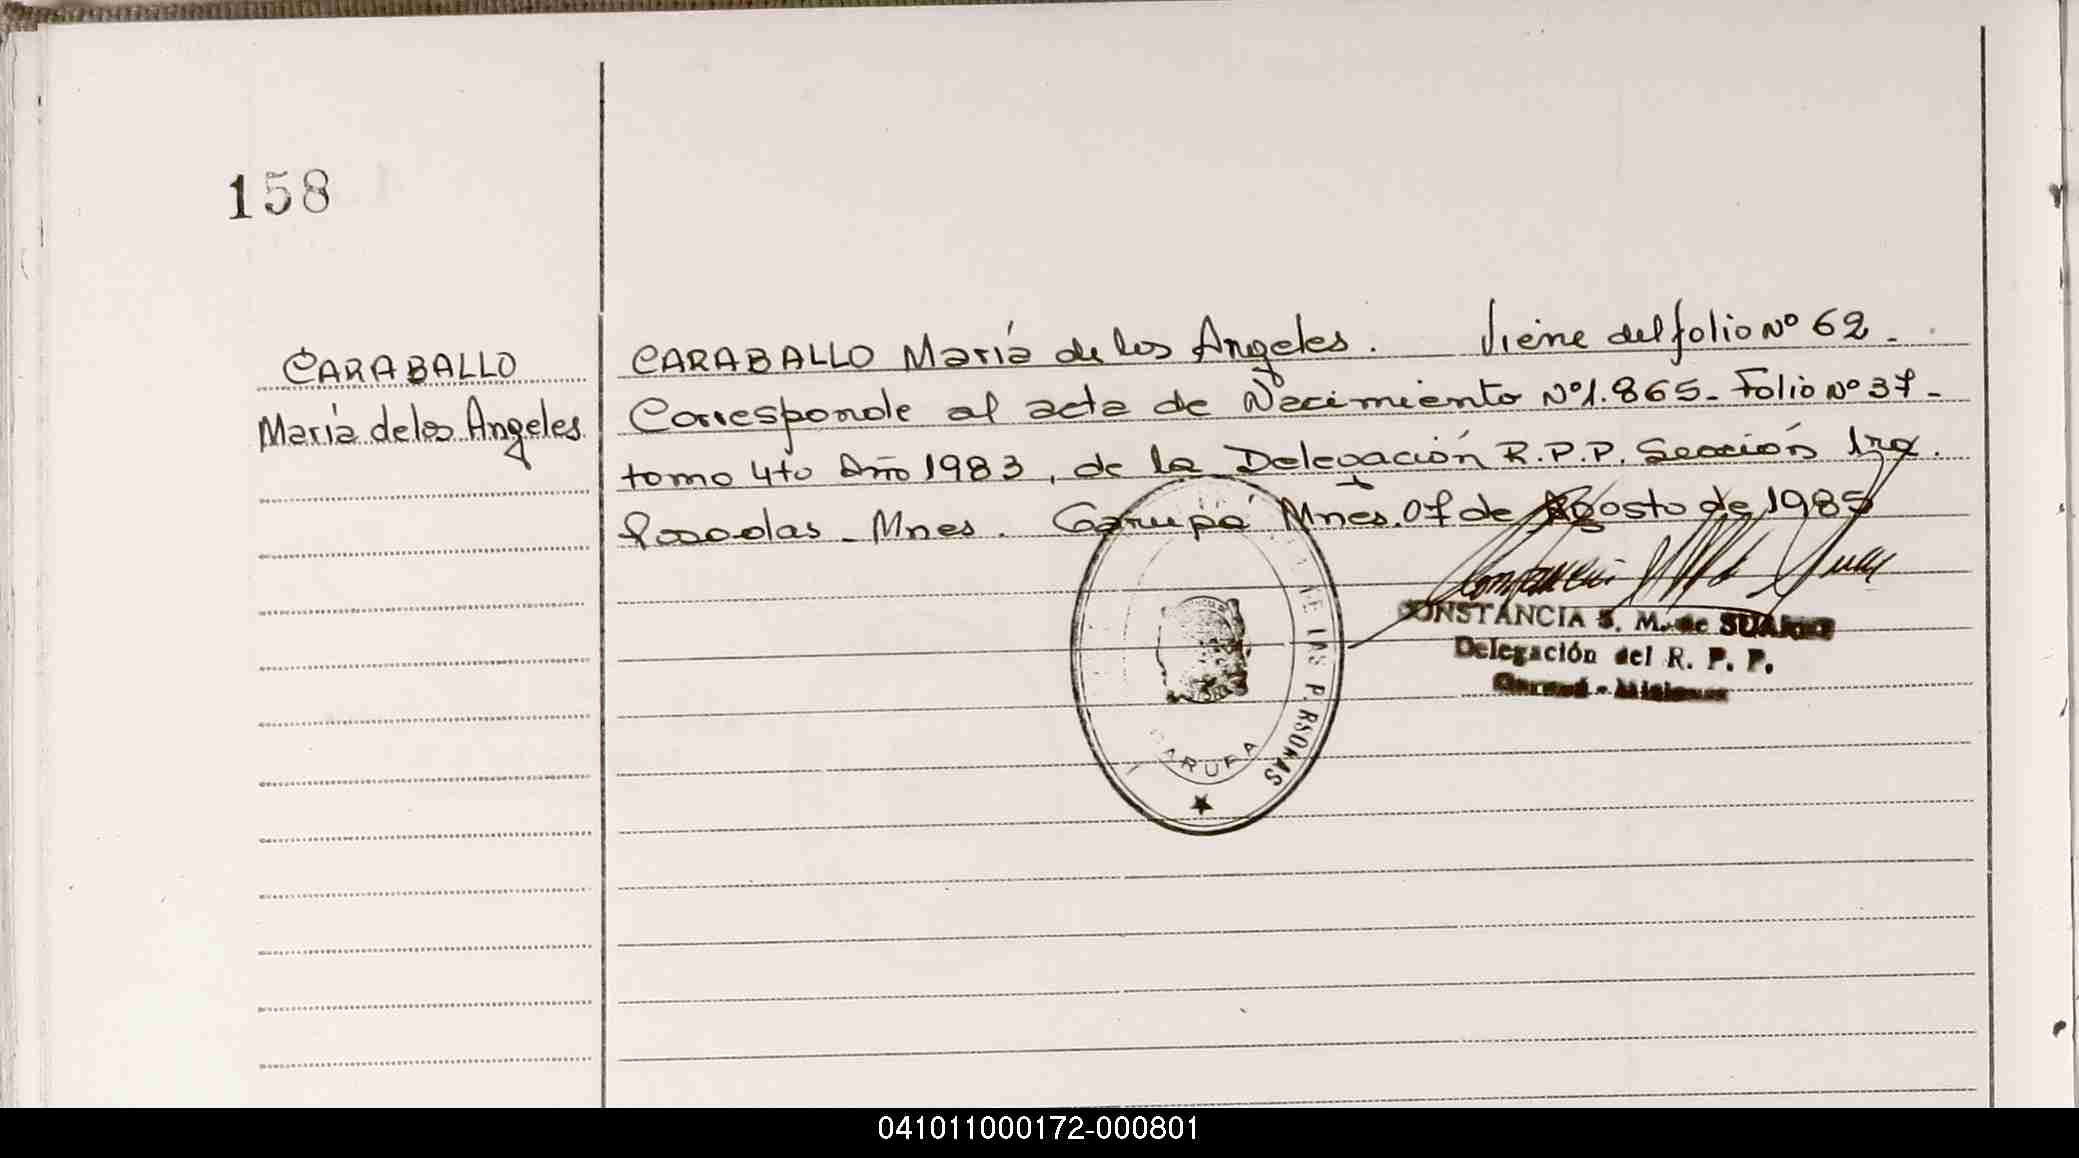 158
CARABALLO
María de los Angeles
CARABALLO María de los Angeles. Viene del folio Nº 62.
Corresponde al acta de Nacimiento Nº 1.865 - Folio Nº 37 -
tomo 4to Año 1983, de la Delegación R.P.P. Sección 1ra.
Posadas - Mnes. Garupá Mnes. 07 de Agosto de 1985
CONSTANCIA S. M. de SUAREZ
Delegación del R. P. P.
Garupá - Misiones
DE LAS P RSONAS
GARUPA
041011000172-000801